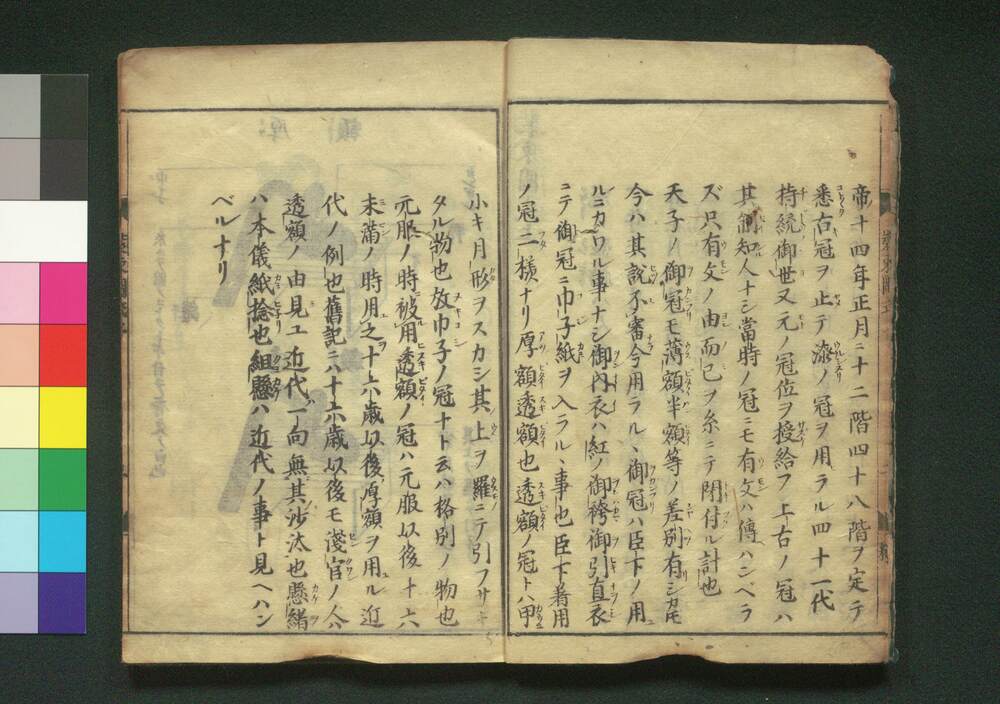 帝十四年正月ニ十二階四十八階ヲ定テ
悉古冠ヲ止テ漆ノ冠ヲ用ラル四十一代
持統御世又元ノ冠位ヲ授給フ上古ノ冠ハ
其制知人ナシ當時ノ冠ニモ有文ハ傳ハンベラ
ズ只有文ノ由而已ヲ糸ニテ閉付ル計也
天子ノ御冠モ薄額半額等ノ差別有シカモ
今ハ其說不審今用ラルヽ御冠ハ臣下ノ用
ルニカワル事ナシ御内衣ハ紅ノ御袴御引直衣
ニテ御冠ニ巾子紙ヲ入ラルヽ事也臣下着用
ノ冠二様ナリ厚額透額也透額ノ冠トハ甲
小キ月形ヲスカシ其上ヲ羅ニテ引フサギ
タル物也放巾子ノ冠ナト云ハ格別ノ物也
元服ノ時被用透額ノ冠ハ元服以後十六
未満ノ時用之十六歳以後厚額ヲ用ル近
代ノ例也舊記ニハ十六歳以後モ淺官ノ人ハ
透額ノ由見エ近代一向無其沙汰也懸緒
ハ本儀紙捻也組懸ハ近代ノ事ト見ヘハン
ベルナリ